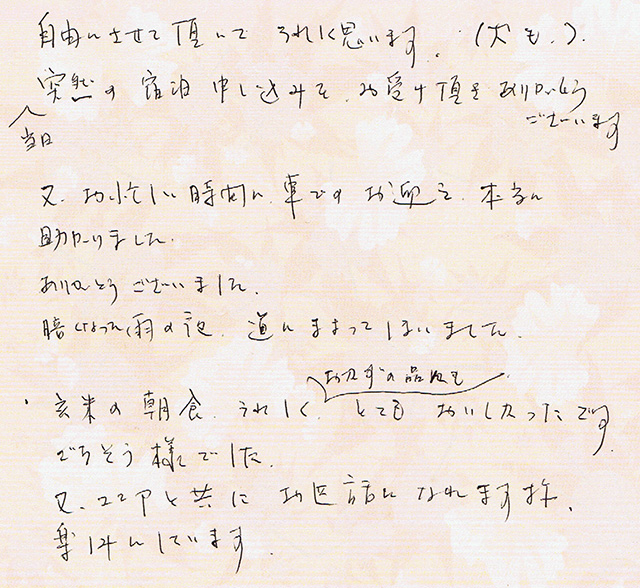 自由にさせて頂いて うれしく思います。(犬も。)
突然の宿泊申し込みを、お受け頂きありがとう
ございます
当日
又、お忙しい時間に、車でのお迎え、本当に
助かりました。
ありがとうございました。
暗くなった雨の夜、道にまよってしまいました。
おかずの品数も
・玄米の朝食、うれしく、とても おいしかったです。
ごちそう様でした。
又、ココアと共に お世話になれます事、
楽しみにしています。